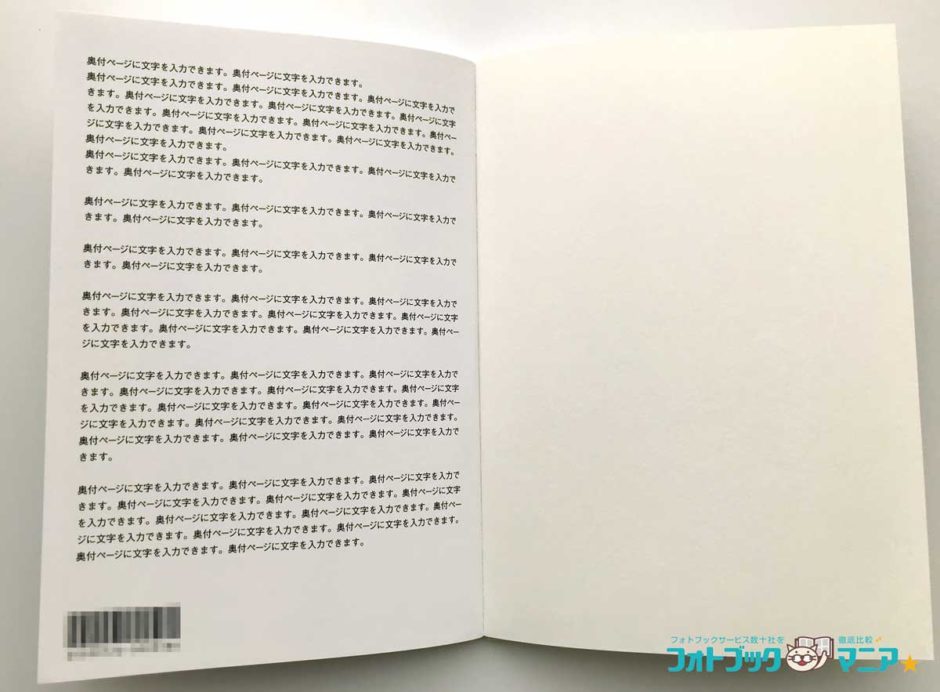 奥付ページに文字を入力できます。奥付ページに文字を入力できます。
奥付ページに文字を入力できます。奥付ページに文字を入力できます。奥付ページに文字を入力で
きます。奥付ページに文字を入力できます。奥付ページに文字を入力できます。奥付ページに文字
を入力できます。奥付ページに文字を入力できます。奥付ページに文字を入力できます。奥付ペー
ジに文字を入力できます。奥付ページに文字を入力できます。奥付ページに文字を入力できます。
奥付ページに文字を入力できます。
奥付ページに文字を入力できます。奥付ページに文字を入力できます。奥付ページに文字を入力で
きます。奥付ページに文字を入力できます。
奥付ページに文字を入力できます。奥付ページに文字を入力できます。奥付ページに文字を入力で
きます。奥付ページに文字を入力できます。
奥付ページに文字を入力できます。奥付ページに文字を入力できます。奥付ページに文字を入力で
きます。奥付ページに文字を入力できます。
奥付ページに文字を入力できます。奥付ページに文字を入力できます。奥付ページに文字を入力で
きます。奥付ページに文字を入力できます。奥付ページに文字を入力できます。奥付ページに文字
を入力できます。奥付ページに文字を入力できます。奥付ページに文字を入力できます。奥付ペー
ジに文字を入力できます。
奥付ページに文字を入力できます。奥付ページに文字を入力できます。奥付ページに文字を入力で
きます。奥付ページに文字を入力できます。奥付ページに文字を入力できます。奥付ページに文字
を入力できます。奥付ページに文字を入力できます。奥付ページに文字を入力できます。奥付ペー
ジに文字を入力できます。奥付ページに文字を入力できます。奥付ページに文字を入力できます。
奥付ページに文字を入力できます。奥付ページに文字を入力できます。奥付ページに文字を入力で
きます。
奥付ページに文字を入力できます。奥付ページに文字を入力できます。奥付ページに文字を入力で
きます。奥付ページに文字を入力できます。奥付ページに文字を入力できます。奥付ページに文字
を入力できます。奥付ページに文字を入力できます。奥付ページに文字を入力できます。奥付ペー
ジに文字を入力できます。奥付ページに文字を入力できます。奥付ページに文字を入力できます。
奥付ページに文字を入力できます。奥付ページに文字を入力できます。
フォトブックサービス数十社を 徹底比較
フォトブックマニア